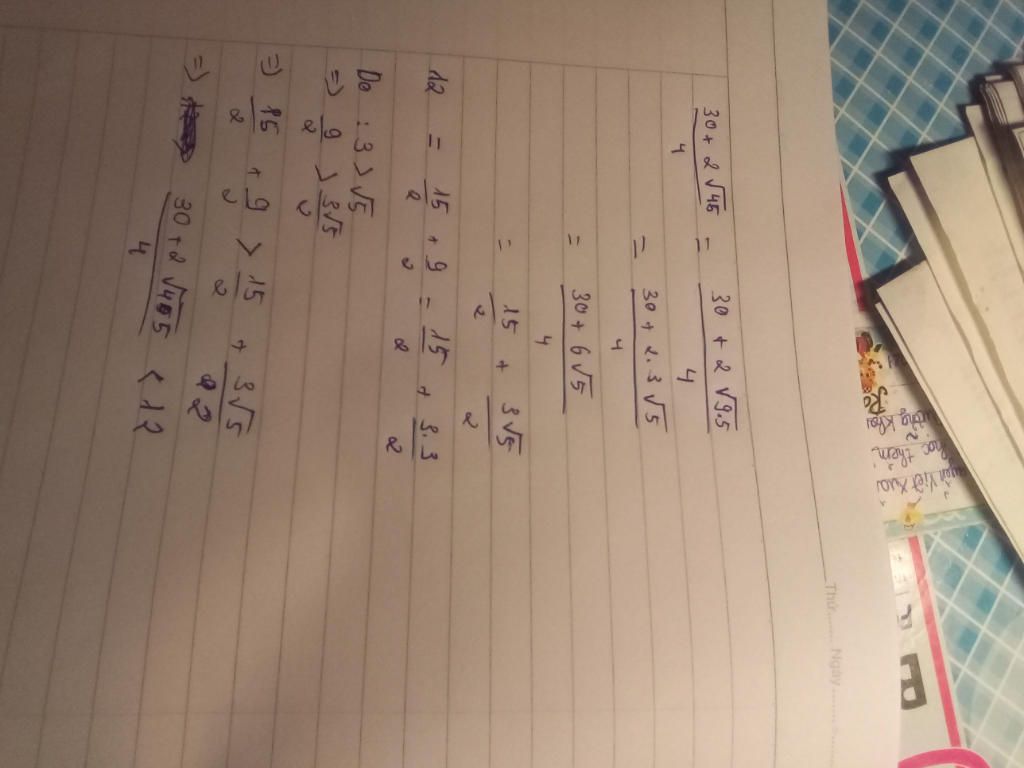 (30 + 2√45)/4 = (30 + 2√9.5)/4
= (30 + 2.3√5)/4
= (30 + 6√5)/4
= 15/2 + 3√5/2
12 = 15/2 + 9/2 = 15/2 + 3.3/2
Do : 3 > √5
=> 9/2 > 3√5/2
=> 15/2 + 9/2 > 15/2 + 3√5/2
=> (30 + 2√45)/4 < 12
Thứ Ngày